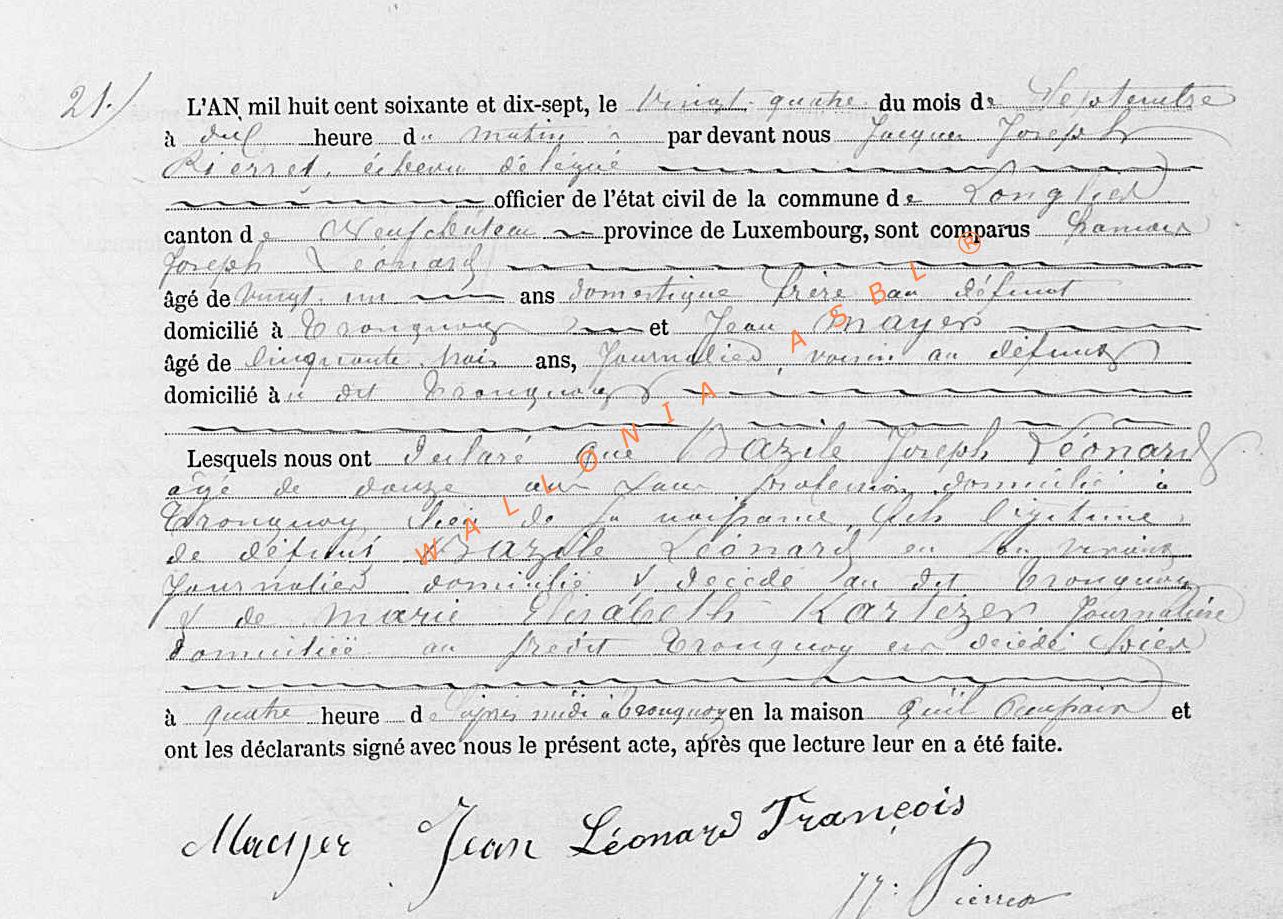 21.)
L'AN mil huit cent soixante et dix-sept, le Vingt quatre du mois de Septembre
à dix heure du matin par devant nous Jacques Joseph
Pierret, échevin délégué
officier de l'état civil de la commune de Longlier
canton de Neufchâteau province de Luxembourg, sont comparus
Joseph Léonard
âgé de vingt un ans domestique frère au défunt
domicilié à Tronquoy et Jean Mayer
âgé de cinquante trois ans, Journalier, voisin au défunt
domicilié au dit Tronquoy
Lesquels nous ont déclaré que Bazile Joseph Léonard
âgé de douze ans sans profession domicilié à
Tronquoy lieu de sa naissance, fils légitime
de défunt Bazile Léonard en son vivant
Journalier domicilié & décédé au dit Tronquoy
& de Marie Elisabeth Kartezer Journalière
domiciliée au prédit Tronquoy est décédé hier
à quatre heure de après midi à Tronquoy en la maison qu'il occupait et
ont les déclarants signé avec nous le présent acte, après que lecture leur en a été faite.
Maeyer Jean Léonard François
JJ: Pierret
WALLONIA ASBL ®